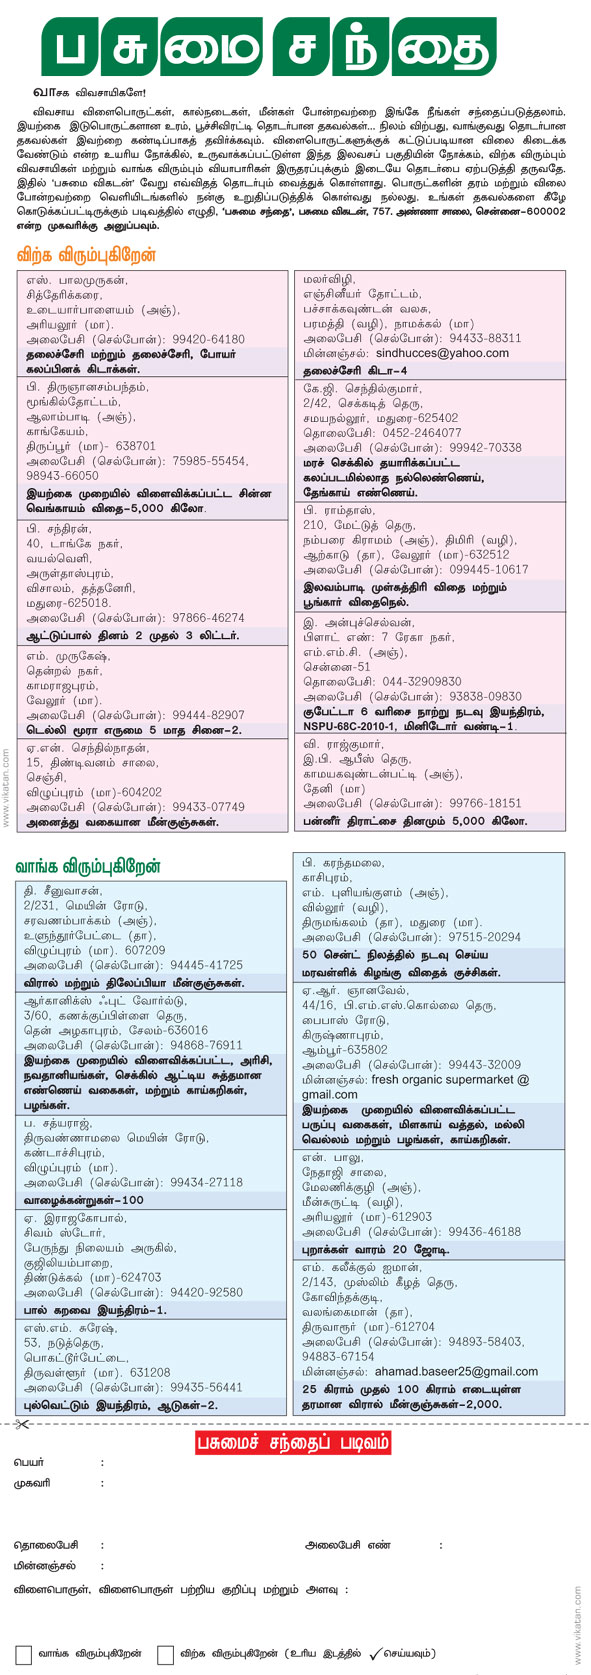 பசுமை சந்தை
வாசக விவசாயிகளே!
விவசாய விளைபொருட்கள், கால்நடைகள், மீன்கள் போன்றவற்றை இங்கே நீங்கள் சந்தைப்படுத்தலாம்.
இயற்கை இடுபொருட்களான உரம், பூச்சிவிரட்டி தொடர்பான தகவல்கள்... நிலம் விற்பது, வாங்குவது தொடர்பான
தகவல்கள் இவற்றை கண்டிப்பாகத் தவிர்க்கவும். விளைபொருட்களுக்குக் கட்டுப்படியான விலை கிடைக்க
வேண்டும் என்ற உயரிய நோக்கில், உருவாக்கப்பட்டுள்ள இந்த இலவசப் பகுதியின் நோக்கம், விற்க விரும்பும்
விவசாயிகள் மற்றும் வாங்க விரும்பும் வியாபாரிகள் இருதரப்புக்கும் இடையே தொடர்பை ஏற்படுத்தி தருவதே.
இதில் 'பசுமை விகடன்' வேறு எவ்விதத் தொடர்பும் வைத்துக் கொள்ளாது. பொருட்களின் தரம் மற்றும் விலை
போன்றவற்றை வெளியிடங்களில் நன்கு உறுதிப்படுத்திக் கொள்வது நல்லது. உங்கள் தகவல்களை கீழே
கொடுக்கப்பட்டிருக்கும் படிவத்தில் எழுதி, 'பசுமை சந்தை', பசுமை விகடன், 757. அண்ணா சாலை, சென்னை-600002
என்ற முகவரிக்கு அனுப்பவும்.
விற்க விரும்புகிறேன்
எஸ். பாலமுருகன்,
சித்தேரிக்கரை,
உடையார்பாளையம் (அஞ்),
அரியலூர் (மா).
அலைபேசி (செல்போன்): 99420-64180
தலைச்சேரி மற்றும் தலைச்சேரி, போயர்
கலப்பினக் கிடாக்கள்.
பி. திருஞானசம்பந்தம்,
மூங்கில்தோட்டம்,
ஆலாம்பாடி (அஞ்),
காங்கேயம்,
திருப்பூர் (மா)- 638701
அலைபேசி (செல்போன்): 75985-55454,
98943-66050
இயற்கை முறையில் விளைவிக்கப்பட்ட சின்ன
வெங்காயம் விதை-5,000 கிலோ.
பி. சந்திரன்,
40, டாங்கே நகர்,
வயல்வெளி,
அருள்தாஸ்புரம்,
விசாலம், தத்தனேரி,
மதுரை-625018.
அலைபேசி (செல்போன்): 97866-46274
ஆட்டுப்பால் தினம் 2 முதல் 3 லிட்டர்.
எம். முருகேஷ்,
தென்றல் நகர்,
காமராஜபுரம்,
வேலூர் (மா).
அலைபேசி (செல்போன்): 99444-82907
டெல்லி மூரா எருமை 5 மாத சினை-2.
ஏ.என். செந்தில்நாதன்,
15, திண்டிவனம் சாலை,
செஞ்சி,
விழுப்புரம் (மா)-604202
அலைபேசி (செல்போன்): 99433-07749
அனைத்து வகையான மீன்குஞ்சுகள்.
மலர்விழி,
எஞ்சினீயர் தோட்டம்,
பச்சாக்கவுண்டன் வலசு,
பரமத்தி (வழி), நாமக்கல் (மா)
அலைபேசி (செல்போன்): 94433-88311
மின்னஞ்சல்: sindhucces@yahoo.com
தலைச்சேரி கிடா-4
கே.ஜி. செந்தில்குமார்,
2/42, செக்கடித் தெரு,
சமயநல்லூர், மதுரை-625402
தொலைபேசி: 0452-2464077
அலைபேசி (செல்போன்): 99942-70338
மரச் செக்கில் தயாரிக்கப்பட்ட
கலப்படமில்லாத நல்லெண்ணெய்,
தேங்காய் எண்ணெய்.
பி. ராம்தாஸ்,
210, மேட்டுத் தெரு,
நம்பரை கிராமம் (அஞ்), திமிரி (வழி),
ஆற்காடு (தா), வேலூர் (மா)-632512
அலைபேசி (செல்போன்): 099445-10617
இலவம்பாடி முள்கத்திரி விதை மற்றும்
பூங்கார் விதைநெல்.
இ. அன்புச்செல்வன்,
பிளாட் எண்: 7 ரேகா நகர்,
எம்.எம்.சி. (அஞ்),
சென்னை-51
தொலைபேசி: 044-32909830
அலைபேசி (செல்போன்): 93838-09830
குபேட்டா 6 வரிசை நாற்று நடவு இயந்திரம்,
NSPU-68C-2010-1, மினிடோர் வண்டி-1.
வி. ராஜ்குமார்,
இ.பி. ஆபீஸ் தெரு,
காமயகவுண்டன்பட்டி (அஞ்),
தேனி (மா)
அலைபேசி (செல்போன்): 99766-18151
பன்னீர் திராட்சை தினமும் 5,000 கிலோ.
www.vikatan.com
வாங்க விரும்புகிறேன்
தி. சீனுவாசன்,
2/231, மெயின் ரோடு,
சரவணம்பாக்கம் (அஞ்),
உளுந்தூர்பேட்டை (தா),
விழுப்புரம் (மா). 607209
அலைபேசி (செல்போன்): 94445-41725
விரால் மற்றும் திலேப்பியா மீன்குஞ்சுகள்.
ஆர்கானிக்ஸ் ஃபுட் வோர்ல்டு,
3/60, கணக்குப்பிள்ளை தெரு,
தென் அழகாபுரம், சேலம்-636016
அலைபேசி (செல்போன்): 94868-76911
இயற்கை முறையில் விளைவிக்கப்பட்ட, அரிசி,
நவதானியங்கள், செக்கில் ஆட்டிய சுத்தமான
எண்ணெய் வகைகள், மற்றும் காய்கறிகள்,
பழங்கள்.
ப. சத்யராஜ்,
திருவண்ணாமலை மெயின் ரோடு,
கண்டாச்சிபுரம்,
விழுப்புரம் (மா).
அலைபேசி (செல்போன்): 99434-27118
வாழைக்கன்றுகள்-100
ஏ. இராஜகோபால்,
சிவம் ஸ்டோர்,
பேருந்து நிலையம் அருகில்,
குஜிலியம்பாறை,
திண்டுக்கல் (மா)-624703
அலைபேசி (செல்போன்): 94420-92580
பால் கறவை இயந்திரம்-1.
எஸ்.எம். சுரேஷ்,
53, நடுத்தெரு,
பொகட்டூர்பேட்டை,
திருவள்ளூர் (மா). 631208
அலைபேசி (செல்போன்): 99435-56441
புல்வெட்டும் இயந்திரம், ஆடுகள்-2.
பி. கரந்தமலை,
காசிபுரம்,
எம். புளியங்குளம் (அஞ்),
வில்லூர் (வழி),
திருமங்கலம் (தா), மதுரை (மா).
அலைபேசி (செல்போன்): 97515-20294
50 சென்ட் நிலத்தில் நடவு செய்ய
மரவள்ளிக் கிழங்கு விதைக் குச்சிகள்.
ஏ.ஆர். ஞானவேல்,
44/16, பி.எம்.எஸ்.கொல்லை தெரு,
பைபாஸ் ரோடு,
கிருஷ்ணாபுரம்,
ஆம்பூர்-635802
அலைபேசி (செல்போன்): 99443-32009
மின்னஞ்சல்: fresh organic supermarket @
gmail.com
இயற்கை முறையில் விளைவிக்கப்பட்ட
பருப்பு வகைகள், மிளகாய் வத்தல், மல்லி
வெல்லம் மற்றும் பழங்கள், காய்கறிகள்.
என். பாலு,
நேதாஜி சாலை,
மேலணிக்குழி (அஞ்),
மீன்சுருட்டி (வழி),
அரியலூர் (மா)-612903
அலைபேசி (செல்போன்): 99436-46188
புறாக்கள் வாரம் 20 ஜோடி.
எம். கலீக்குல் ஐமான்,
2/143, முஸ்லிம் கீழத் தெரு,
கோவிந்தக்குடி,
வலங்கைமான் (தா),
திருவாரூர் (மா)-612704
அலைபேசி (செல்போன்): 94893-58403,
94883-67154
மின்னஞ்சல்: ahamad.baseer25@gmail.com
25 கிராம் முதல் 100 கிராம் எடையுள்ள
தரமான விரால் மீன்குஞ்சுகள்-2,000.
பசுமைச் சந்தைப் படிவம்
பெயர் :
முகவரி :
தொலைபேசி : அலைபேசி எண் :
மின்னஞ்சல் :
விளைபொருள், விளைபொருள் பற்றிய குறிப்பு மற்றும் அளவு :
வாங்க விரும்புகிறேன் விற்க விரும்புகிறேன் (உரிய இடத்தில் ✓ செய்யவும்)
www.vikatan.com